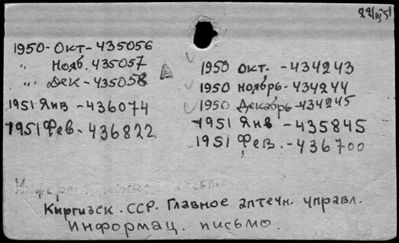 22/III 51
1950-Окт-435056
" Нояб. 435057
" Дек-435058
1951 Янв-436074
1951 Фев-436822
1950 Окт.-434243
1950 Ноябрь-434244
1950 Декабрь-434245
1951 Янв-435845
1951 Фев.-436700
Киргизск. ССР. Главное аптечн. управл.
Информац. письмо.